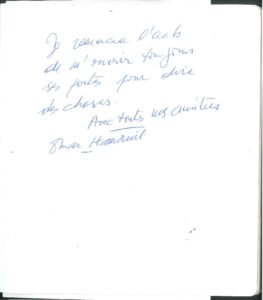 Je remercie l'acb
de m'ouvrir toujours
ses portes pour dire
des choses.
Avec toutes mes amitiés
Omar